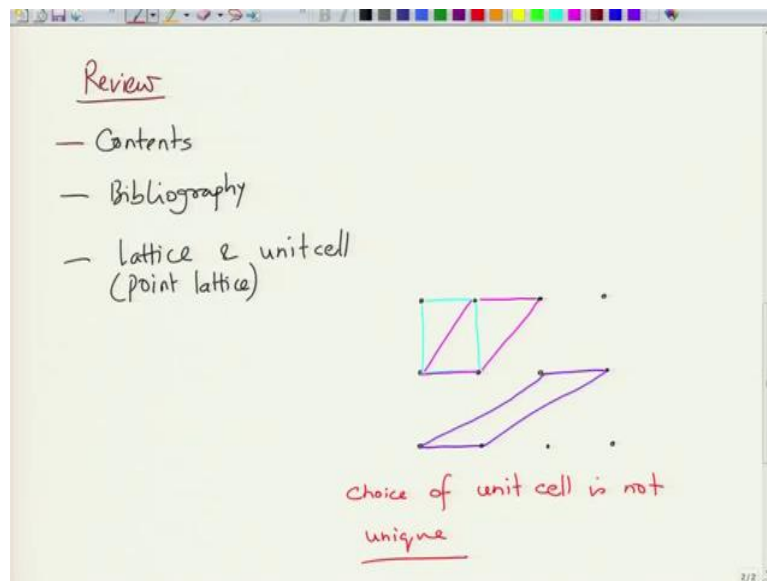 Review
— Contents
— Bibliography
— lattice & unitcell
(point lattice)
choice of unit cell is not
unique
2/2